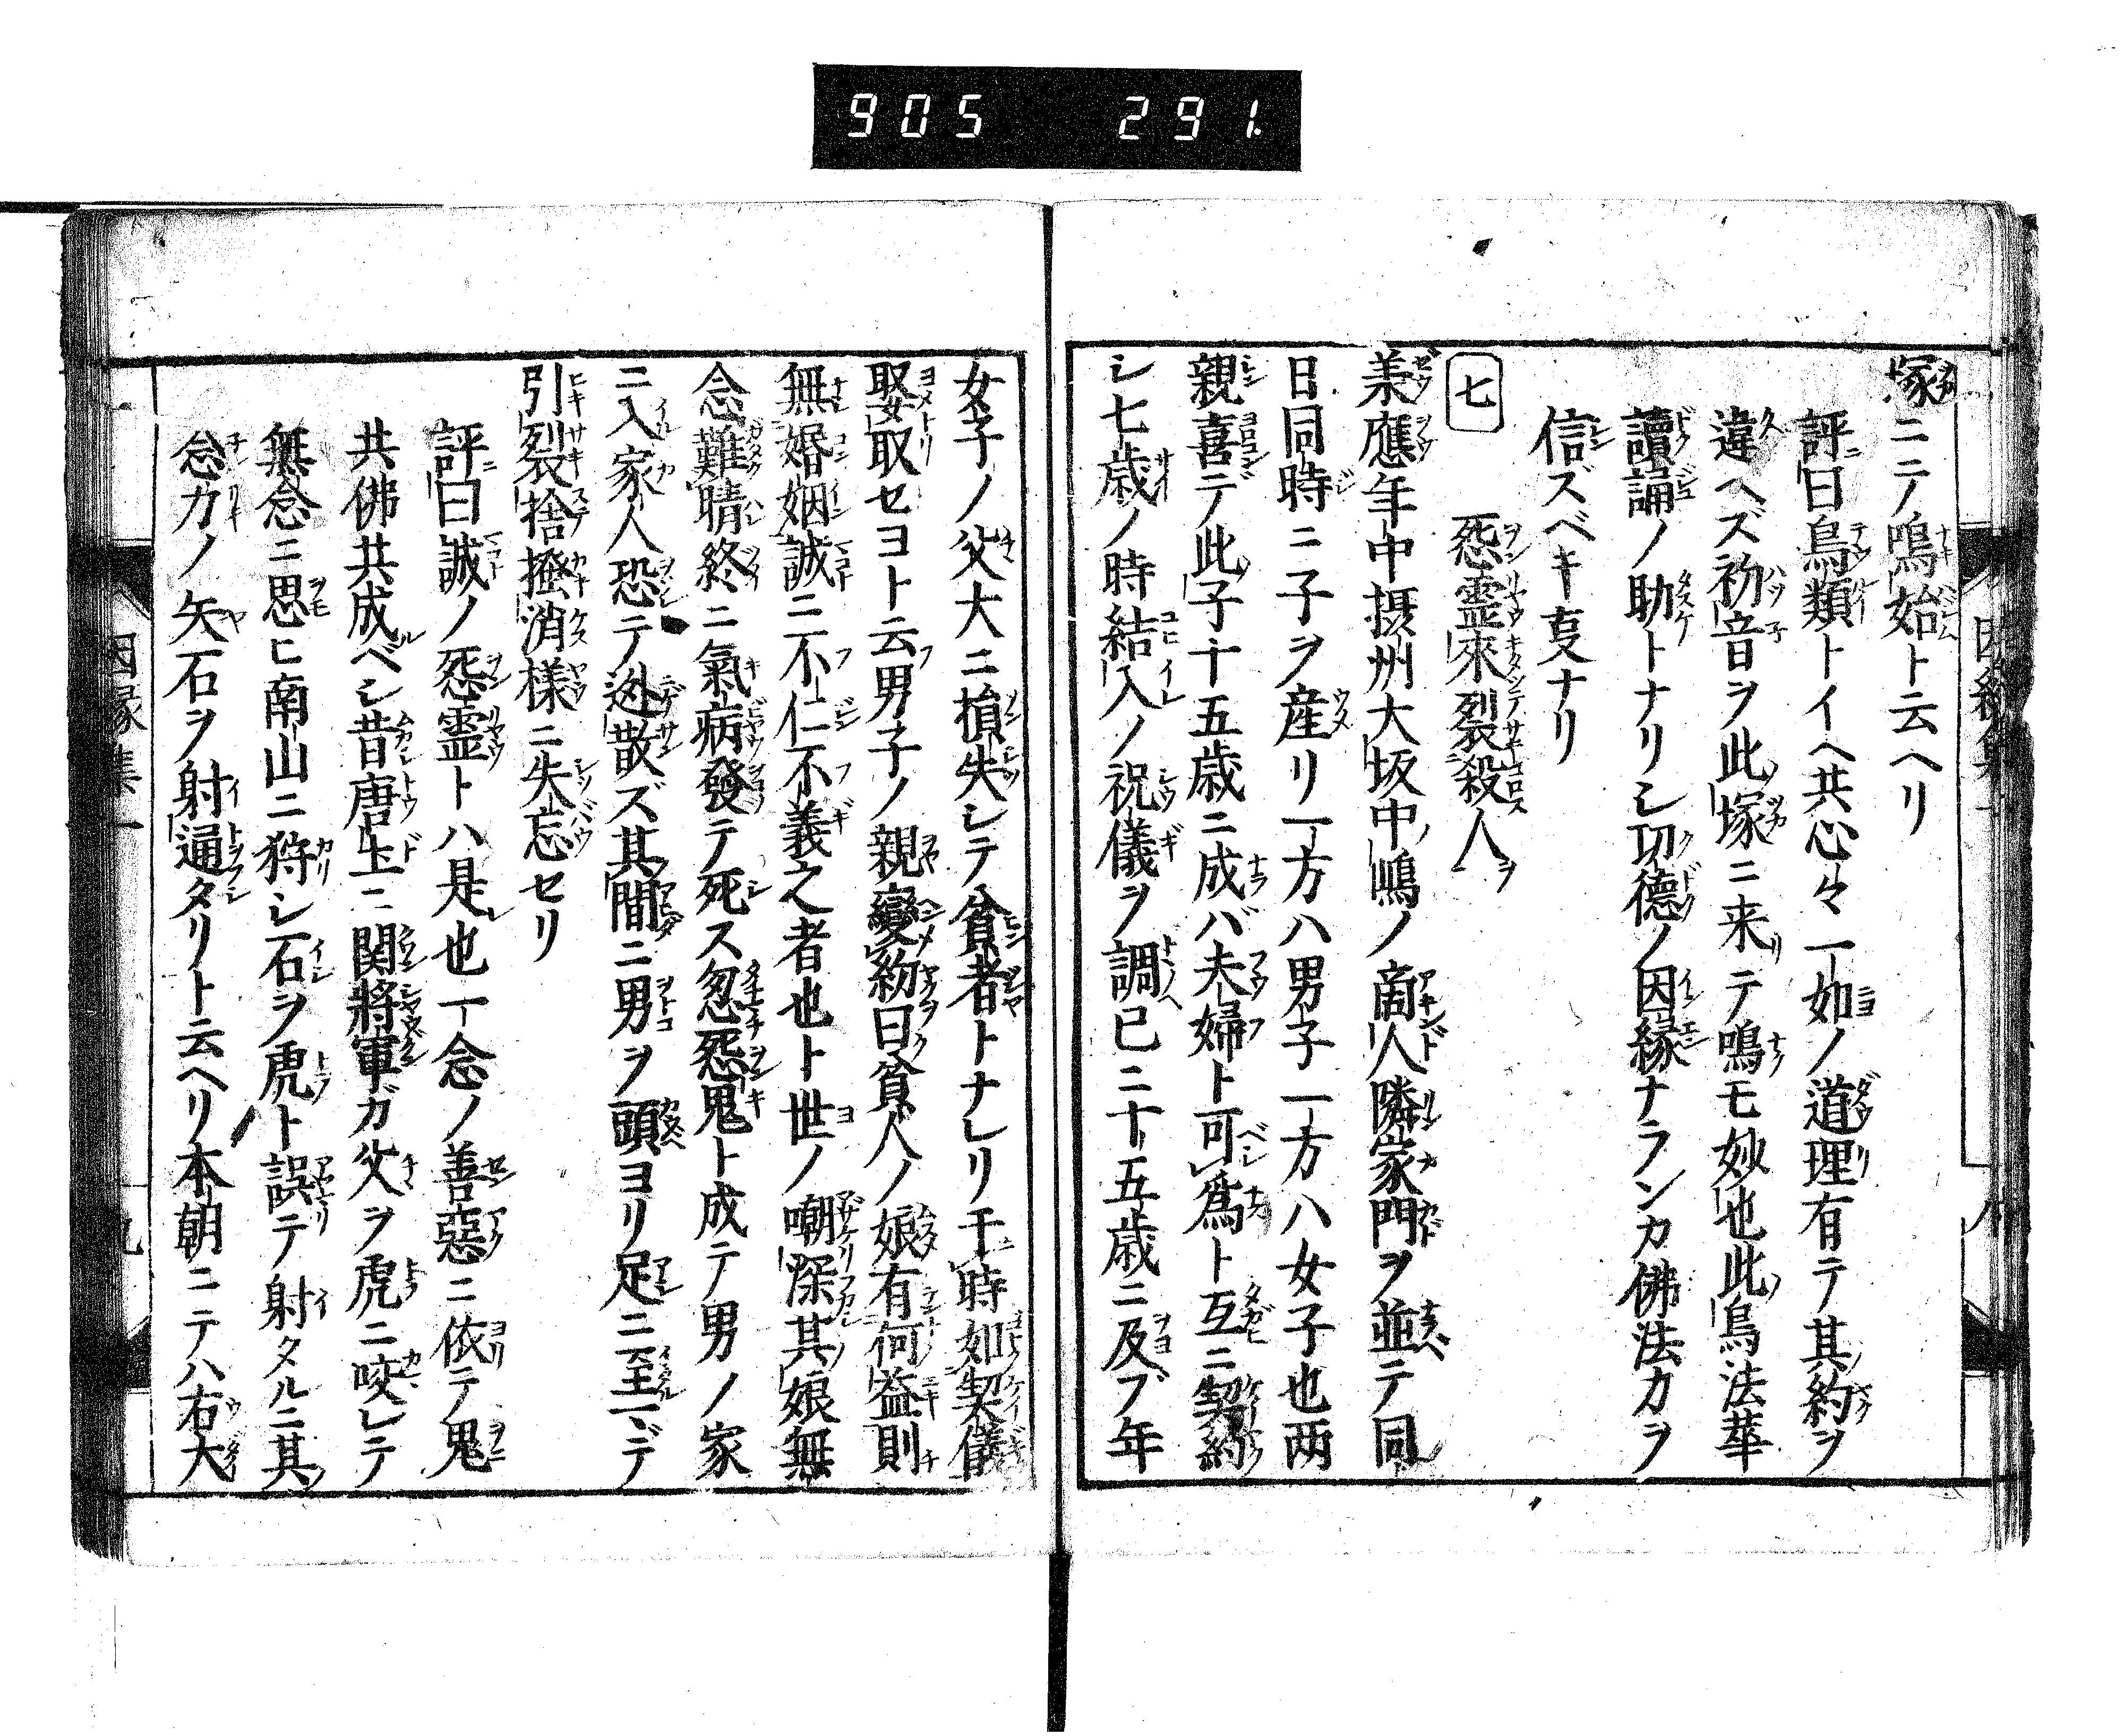 905 291.
塚ニニノ鳴始ト云ヘリ
評曰鳥類トイヘ共心々一如ノ道理有テ其約ヲ
違ヘズ初音ヲ此塚ニ来テ鳴モ妙也此鳥法華
讀誦ノ助トナリシ切德ノ因縁ナランカ佛法カヲ
信ズベキ叓ナリ
七 怨霊來裂殺人ヲ
業應年中摂州大坂中ノ嶋ノ商人隣家門ヲ並テ同
日同時ニ子ヲ産リ一方ハ男子一方ハ女子也両
親喜デ此子十五歳ニ成バ夫婦ト可爲ト互ニ契約
シ七歳ノ時結入ノ祝儀ヲ調已ニ十五歳ニ及ブ年
女子ノ父大ニ損失シテ貧者トナレリ于時如契儀
娶取セヨト云男子ノ親變約曰貧人ノ娘有何益則
無婚姻誠ニ不仁不義之者也ト世ノ嘲深其娘無
念難晴終ニ氣病發テ死ス忽怨鬼ト成テ男ノ家
ニ入家人恐テ迯散ズ其間ニ男ヲ頭ヨリ足ニ至マデ
引裂捨撥消様ニ失忘セリ
評曰誠ノ怨霊トハ是也一念ノ善惡ニ依テ鬼
共佛共成ベシ昔唐土ニ関將軍ガ父ヲ虎ニ咬レテ
無念ニ思ヒ南山ニ狩シ石ヲ虎ト誤テ射タルニ其
念カノ矢石ヲ射通タリト云ヘリ本朝ニテハ右大
因縁集一
九